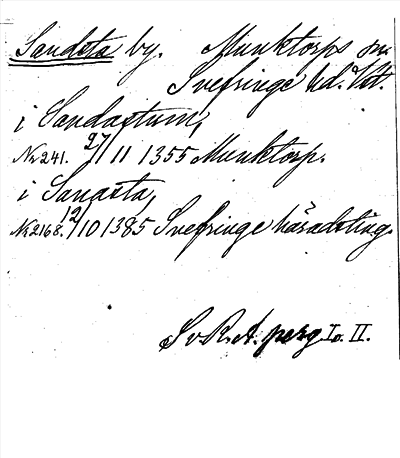 Sandsta by. Munktorps sn.
Snefringe hd. Vstm.
i Sandastum,
Nr 241. 27/11 1355 Munktorp.
i Sandsta,
Nr 2168. 12/10 1385 Snefringe häradsting.
Sv. R. A. perg I o. II.